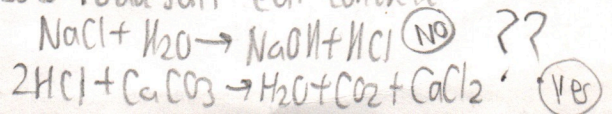 NaCl + H2O → NaOH + HCl (NO) ??
2HCl + CaCO3 → H2O + CO2 + CaCl2 (Yes)